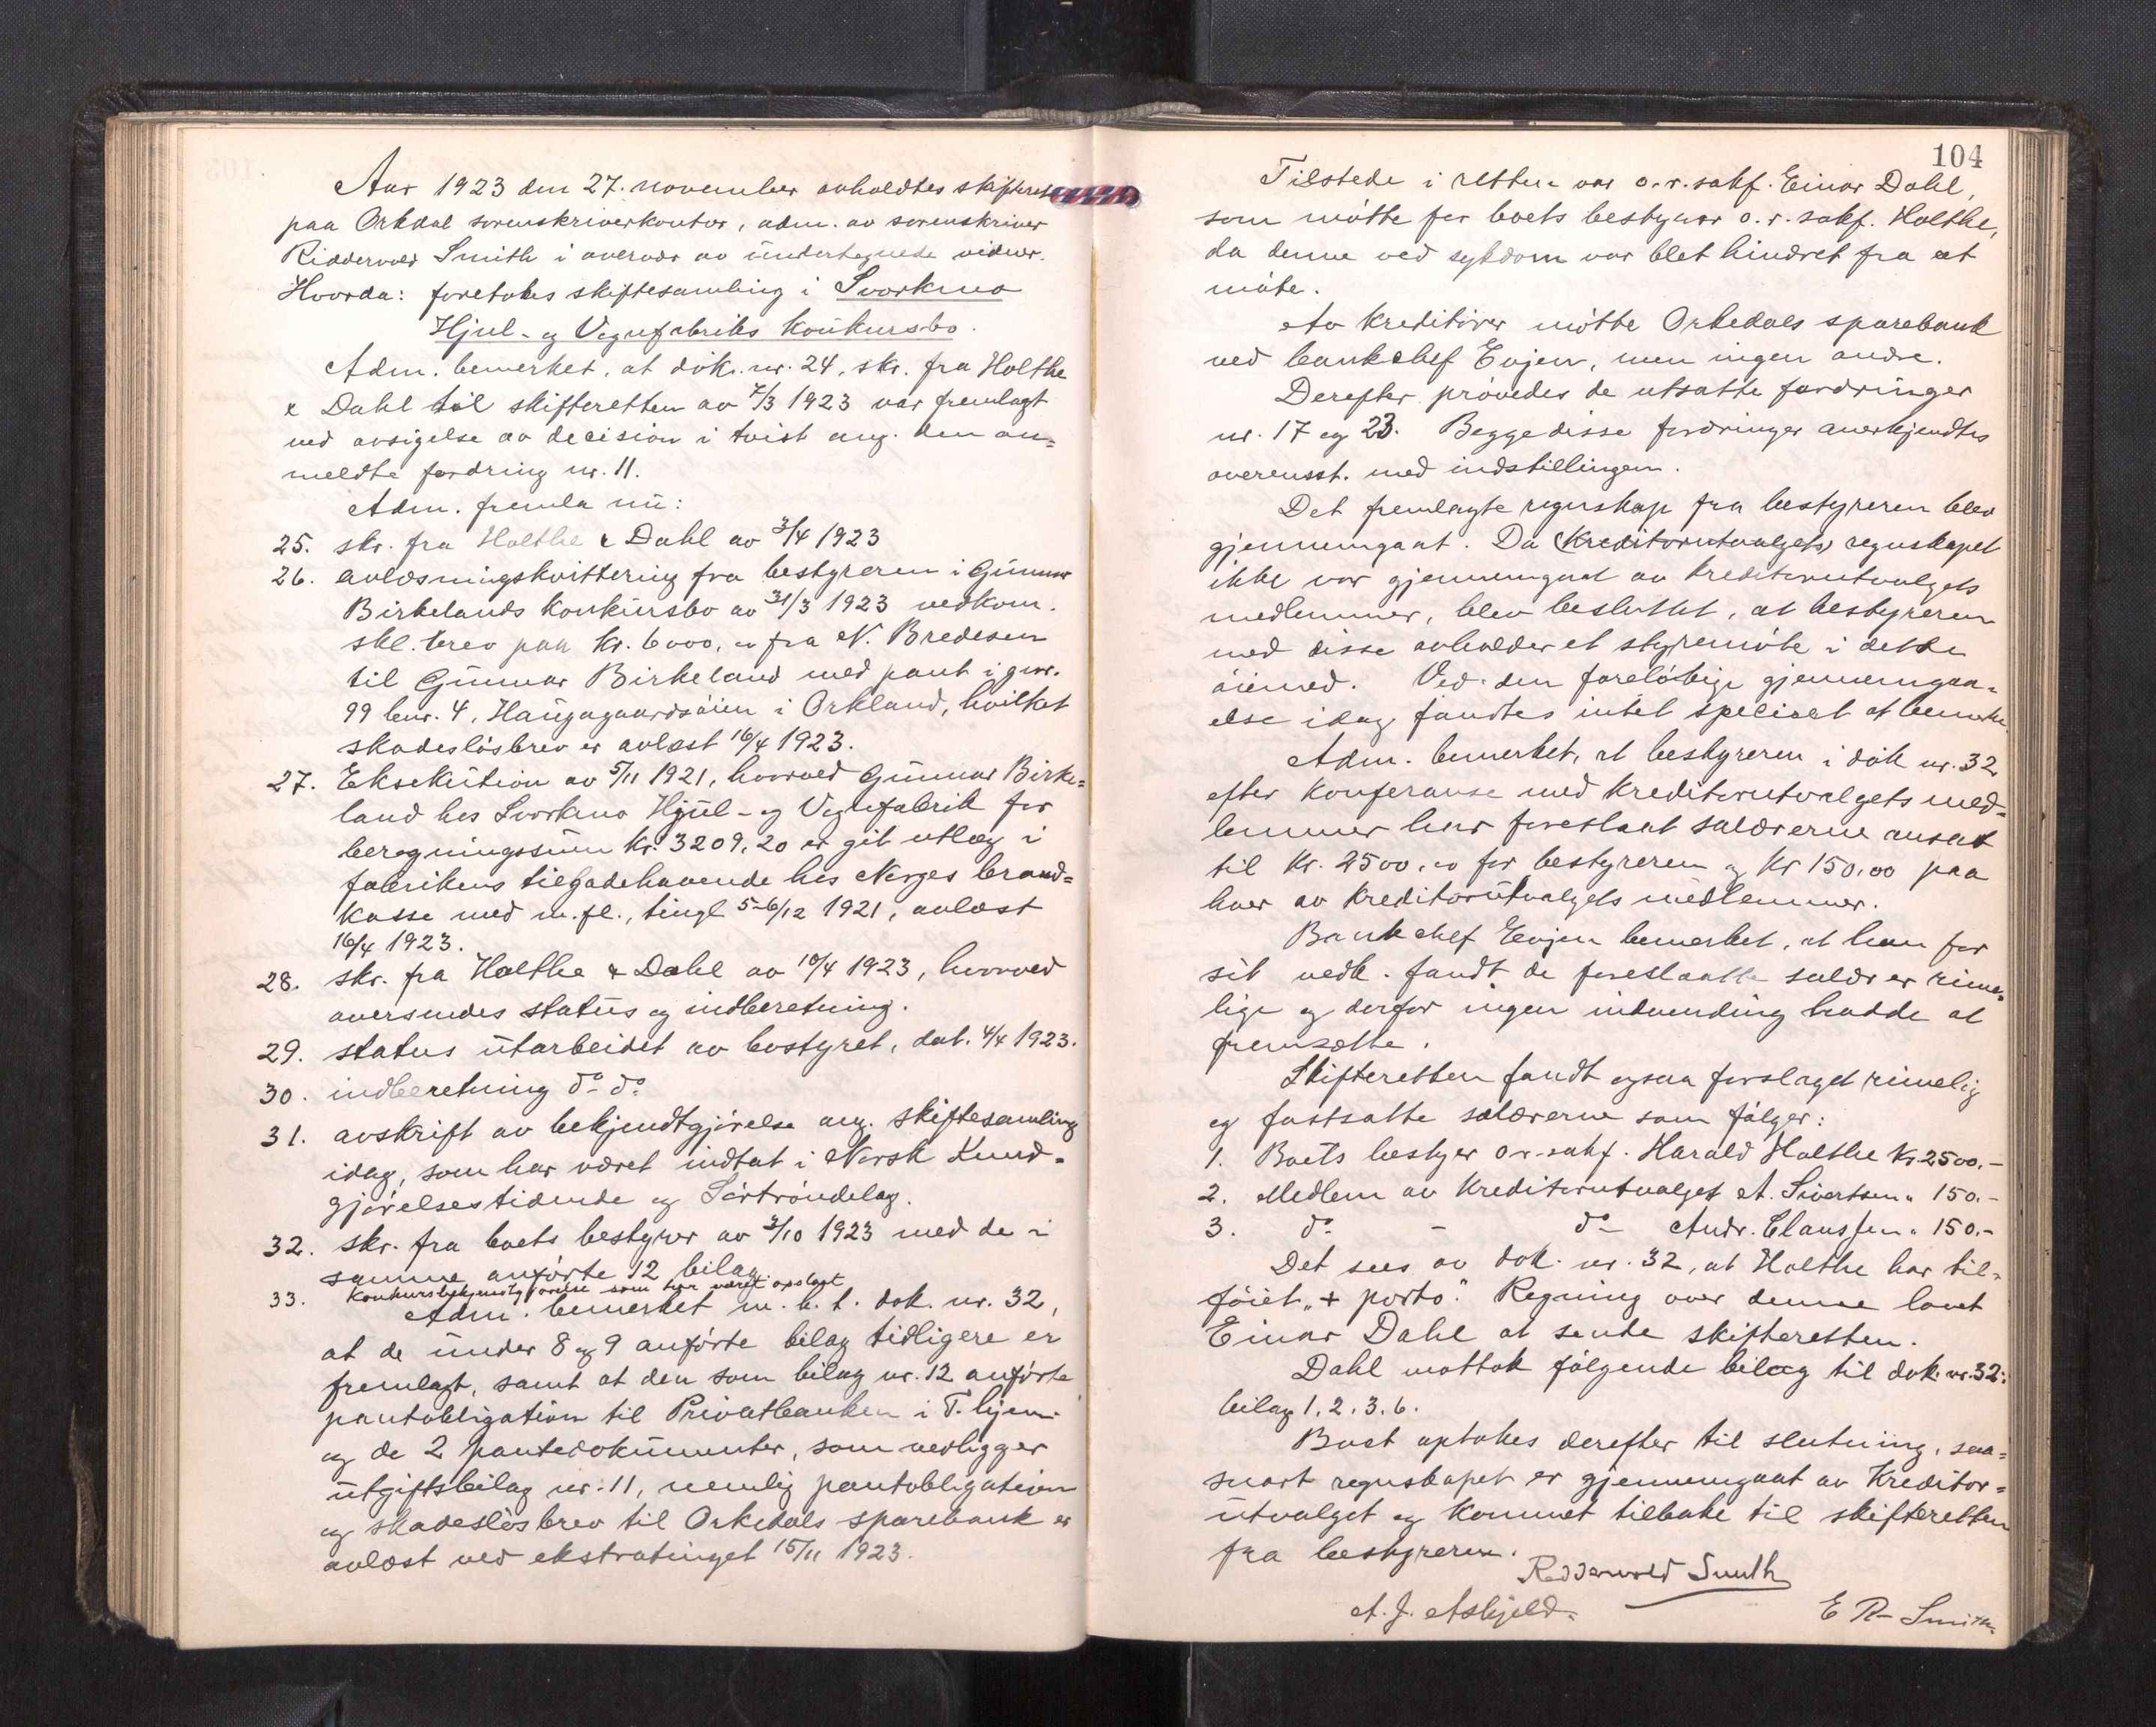 Aar 1923 den 27. november avholdtes skifteret
paa Orkdal sorenskriverkontor, adm. av sorenskriver
Riddervold Smith i overvær av undertegnede vidner.
Hvorda: foretokes skiftesamling i Svorkmo
Hjul- og Vognfabriks konkursbo.
Adm. bemerket, at dok. nr. 24, skr. fra Holthe
& Dahl til skifteretten av 7/3 1923 var fremlagt
ved avsigelse av decision i tvist ang. den an=
meldte fordring nr. 11.
Adm. fremla nu:
25. skr. fra Holthe & Dahl av 3/4 1923
26. avløsningskvittering fra bestyreren i Gunnar
Birkelands konkursbo av 31/3 1923 vedkom.
skl. brev paa kr. 6000,00 fra N. Bredesen
til Gunnar Birkeland med pant i gnr.
99 bnr. 4, Haugagaardsøien i Orkland, hvilket
skadesløsbrev er avlæst 16/4 1923.
27. Eksekution av 5/11 1921, hvorved Gunnar Birke=
land hos Svorkmo Hjul- og Vognfabrik for
beregningssum kr. 3209,20 er git utlæg i
fabrikens tilgodehavende hos Norges brand=
kasse med m. fl., tingl. 5-6/12 1921, avlæst
16/4 1923.
28. skr. fra Holthe & Dahl av 10/4 1923, hvorved
oversendes status og indberetning.
29. status utarbeidet av bostyret, dat. 4/4 1923.
30. indberetning do do
31. avskrift av bekjendtgjørelse ang. skiftesamling
idag, som har været indtat i Norsk Kund-
gjørelsestidende og Sørtrøndelag.
32. skr. fra boets bestyrer av 3/10 1923 med de i
samme anførte 12 bilag
33. Konkursbekjendtgjørelse som har været opslaat
Adm. bemerket m. h. t. dok. nr. 32,
at de under 8 og 9 anførte bilag tidligere er
fremlagt, samt at den som bilag nr. 12 anførte
pantobligation til Privatbanken i T.hjem
og de 2 pantedokumenter, som vedligger
utgiftsbilag nr. 11, nemlig pantobligation
og skadesløsbrev til Orkedals sparebank er
avlæst ved ekstratinget 15/11 1923.
104
Tilstede i retten var o.r.sakf. Einar Dahl,
som møtte for boets bestyrer o.r.sakf. Holthe,
da denne ved sykdom var blet hindret fra at
møte.
Av kreditorer møtte Orkedals sparebank
ved bankchef Evjen, men ingen andre.
Derefter prøvedes de utsatte fordringer
nr. 17 og 23. Begge disse fordringer anerkjendtes
overensst. med indstillingen.
Det fremlagte regnskap fra bestyreren blev
gjennemgaat. Da (Kreditorutvalgets) regnskapet
ikke var gjennemgaat av kreditorutvalgets
medlemmer, blev besluttet, at bestyreren
med disse avholder et styremøte i dette
øiemed. Ved den foreløbige gjennemgaa-
else idag fandtes intet specielt at bemerke
Adm. bemerket, at bestyreren i dok nr. 32
efter konferanse med kreditorutvalgets med=
lemmer har foreslaat salærerne ansat
til kr. 2500,00 for bestyreren og kr 150,00 paa
hver av kreditorutvalgets medlemmer.
Bankchef Evjen bemerket, at han for
sit vedk. fandt de foreslaatte salærer rime-
lige og derfor ingen indvending hadde at
fremsætte.
Skifteretten fandt ogsaa forslaget rimelig
og fastsatte salærerne som følger:
1. Boets bestyrer o.r.sakf. Harald Holthe kr. 2500.-
2. Medlem av kreditorutvalget A. Sivertsen " 150.-
3. do - do - Andr. Claussen " 150.-
Det sees av dok. nr. 32, at Holthe har til-
føiet "+ porto". Regning over denne lovet
Einar Dahl at sende skifteretten.
Dahl mottok følgende bilag til dok. nr. 32:
bilag 1. 2. 3. 6.
Boet optokes derefter til slutning, saa=
snart regnskapet er gjennemgaat av kreditor=
utvalget og kommet tilbake til skifteretten
fra bestyreren.
Riddervold Smith
A. J. Askjeld.
E R Smith